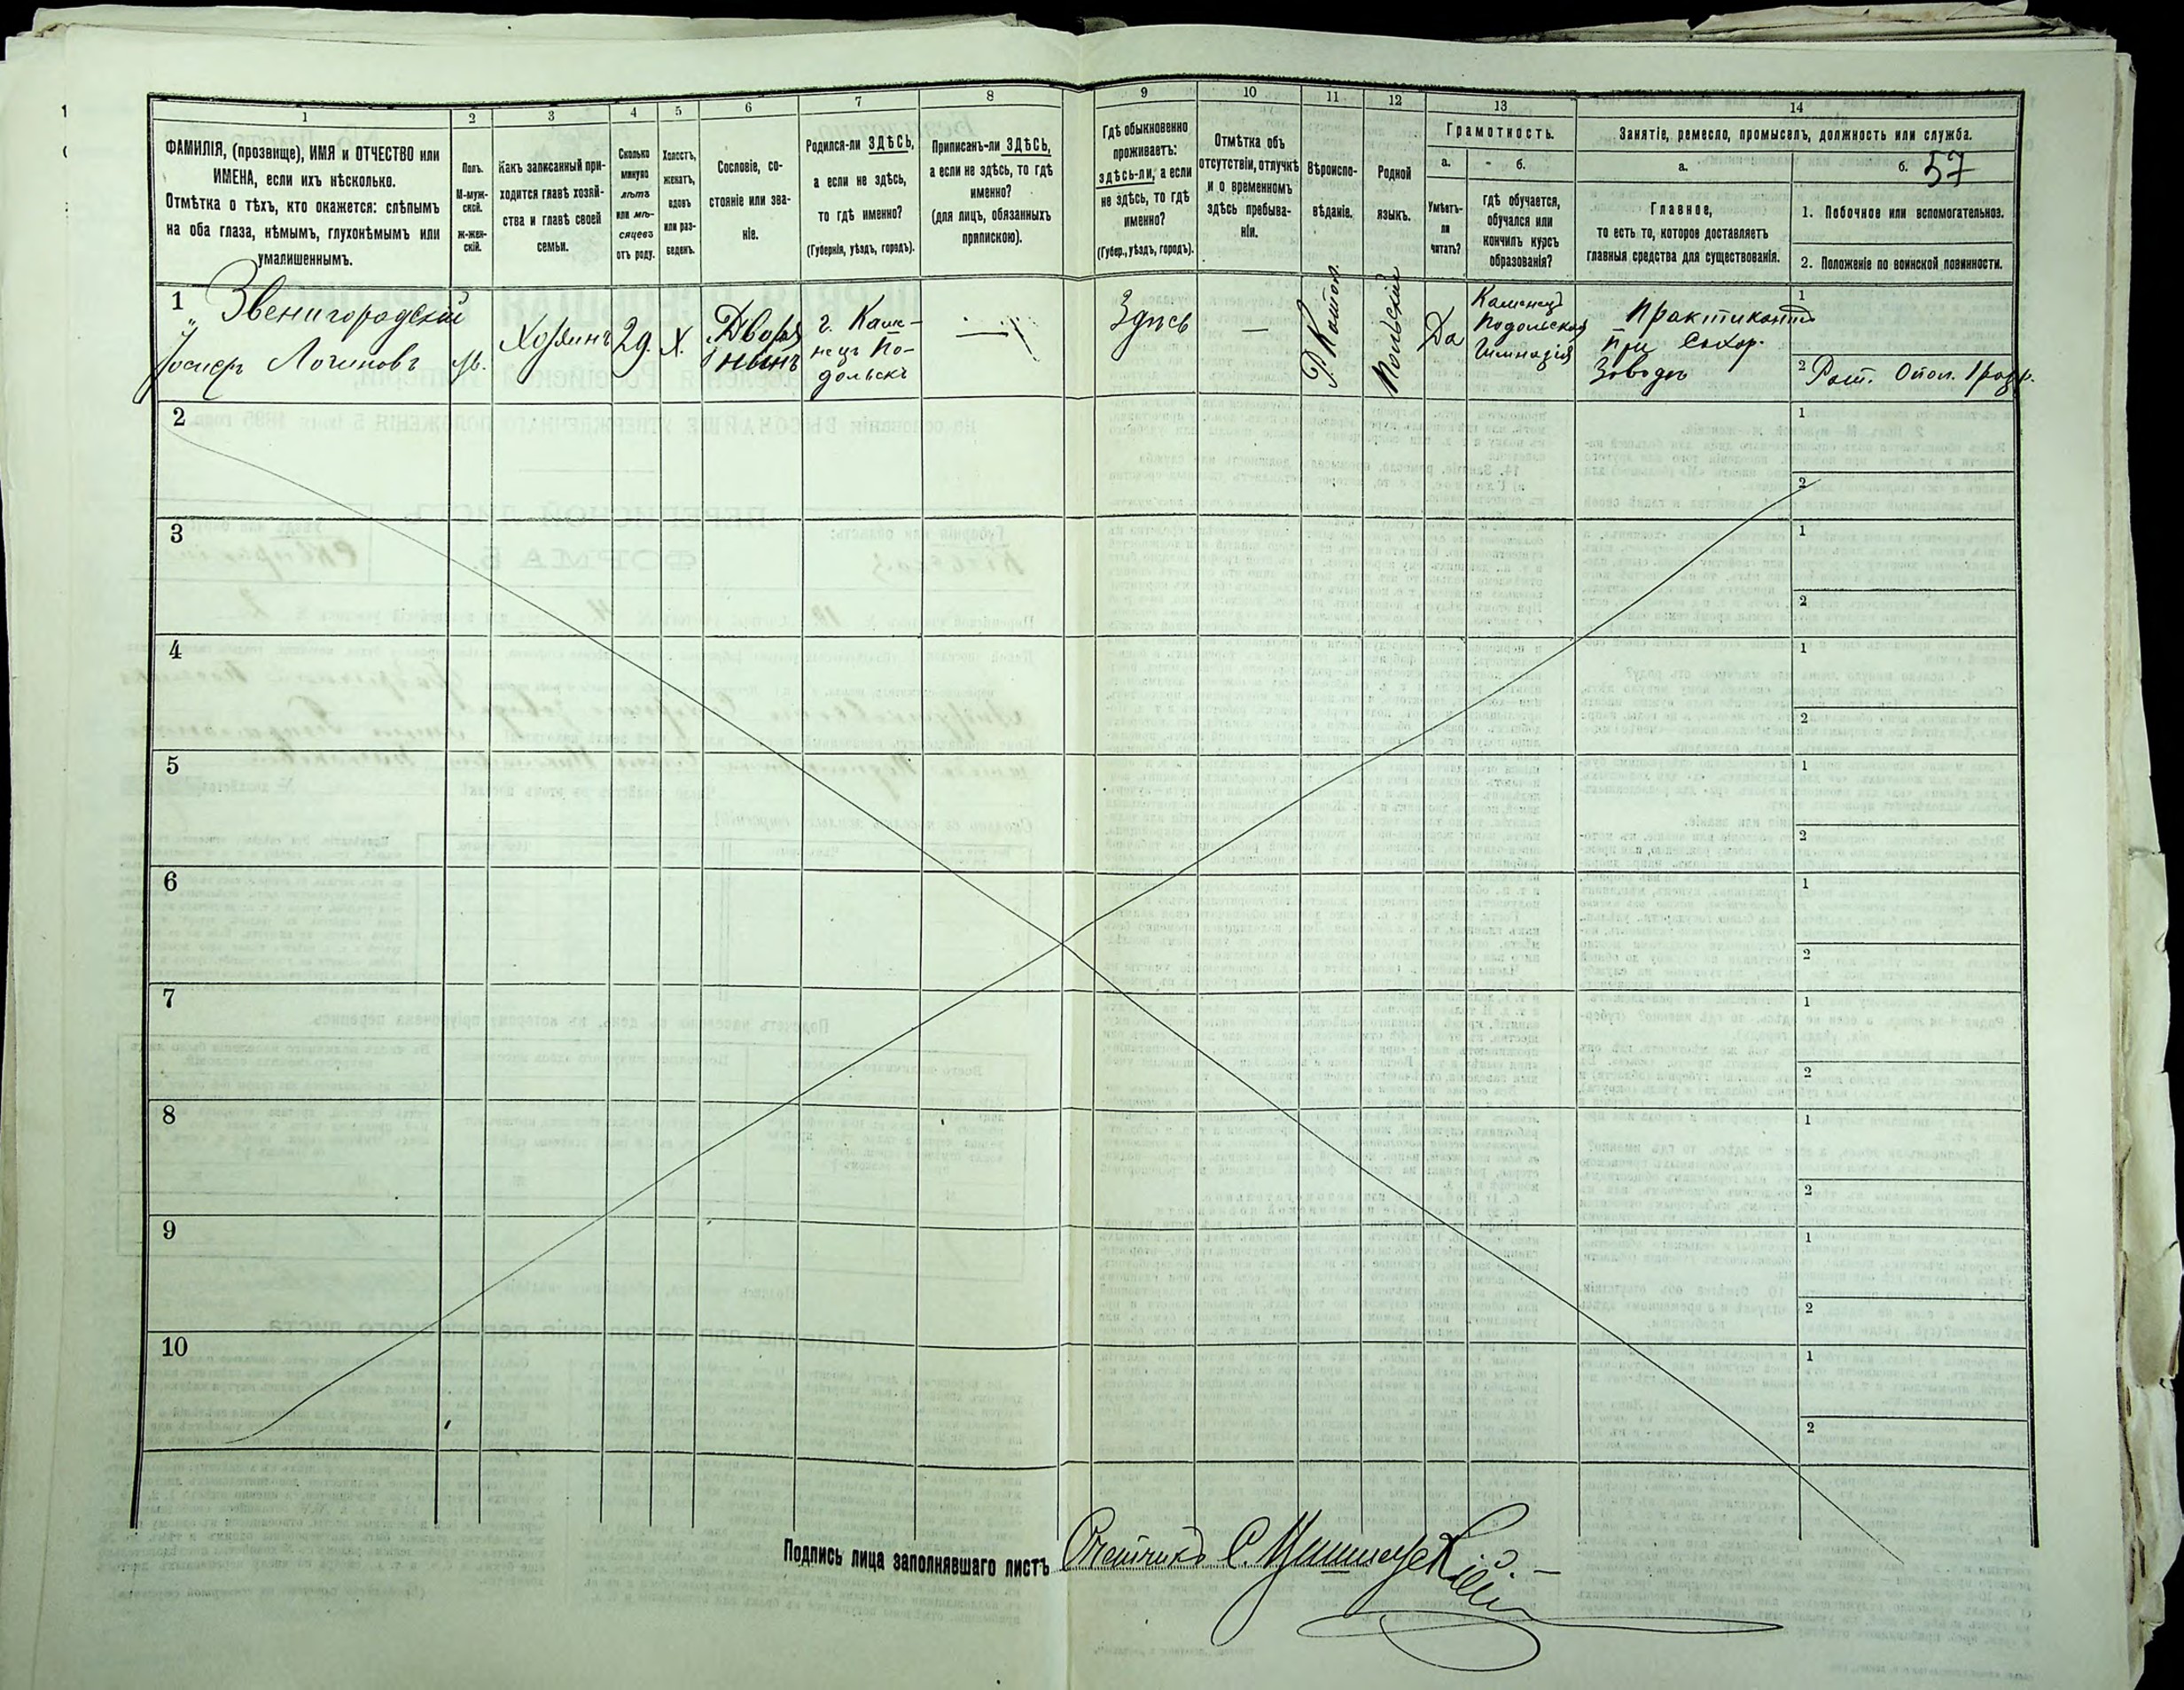 1 2 3 4 5 6 7 8 9 10 11 12 13 14
ФАМИЛІЯ, (прозвище), ИМЯ и ОТЧЕСТВО или
ИМЕНА, если ихъ нѣсколько.
Отмѣтка о тѣхъ, кто окажется: слѣпымъ
на оба глаза, нѣмымъ, глухонѣмымъ или
умалишеннымъ.
Полъ.
М-муж-
ской.
ж-жен-
скій.
Какъ записанный при-
ходится главѣ хозяй-
ства и главѣ своей
семьи.
Сколько
минуло
лѣтъ
или мѣ-
сяцевъ
отъ роду.
Холостъ,
женатъ,
вдовъ
или раз-
веденъ.
Сословіе, со-
стояніе или зва-
ніе.
Родился-ли ЗДѢСЬ,
а если не здѣсь,
то гдѣ именно?
(Губернія, уѣздъ, городъ).
Приписанъ-ли ЗДѢСЬ,
а если не здѣсь, то гдѣ
именно?
(для лицъ, обязанныхъ
припискою).
Гдѣ обыкновенно
проживаетъ:
здѣсь-ли, а если
не здѣсь, то гдѣ
именно?
(Губер., уѣздъ, городъ).
Отмѣтка объ
отсутствіи, отлучкѣ
и о временномъ
здѣсь пребыва-
ніи.
Вѣроиспо-
вѣданіе.
Родной
языкъ.
Грамотность.
а.
б.
Умѣетъ-
ли
читать?
гдѣ обучается,
обучался или
кончилъ курсъ
образованія?
Занятіе, ремесло, промыселъ, должность или служба.
а.
б. 57
Главное,
то есть то, которое доставляетъ
главныя средства для существованія.
1. Побочное или вспомогательное.
2. Положеніе по воинской повинности.
1 Звенигородскій
Іосифъ Логиновъ
М.
Хозяинъ
29.
Х.
Дворя
нинъ
г. Каме-
нецъ По-
дольскъ
—
Здѣсь
—
Р. Катол.
Польскій
Да
Каменецъ
Подольская
Гимназія
Практикантъ
при Сахар.
Заводѣ
1
2 Рат. Опол. 1 разр.
2
1
2
3
1
2
4
1
2
5
1
2
6
1
2
7
1
2
8
1
2
9
1
2
10
1
2
Подпись лица заполнявшаго листъ Счетчикъ С.